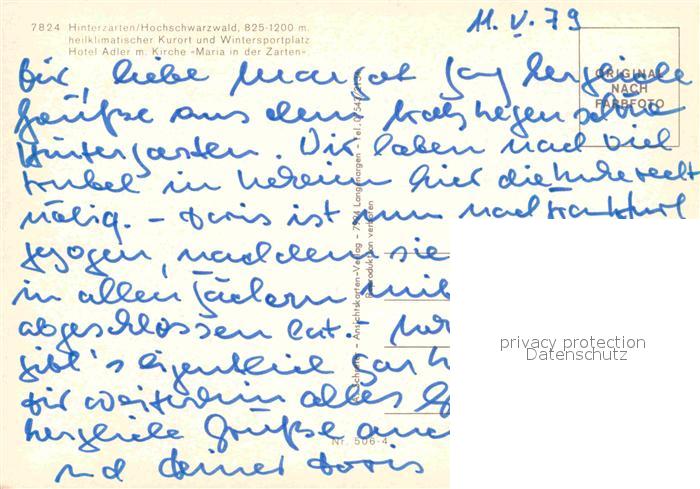 7824 Hinterzarten/Hochschwarzwald, 825-1200 m.
heilklimatischer Kurort und Wintersportplatz
Hotel Adler m. Kirche «Maria in der Zarten»
11. V. 79
ORIGINAL
NACH
FARBFOTO
Dir, liebe Margot herzliche
Grüße aus dem trotz Regen schönen
Hinterzarten. Wir haben nach viel
Trubel in hier die Ruhe recht
nötig. – Doris ist nun nach Frankfurt
gezogen, nachdem sie
in allen Fächern mit
abgeschlossen hat. –
gibt's eigentlich gar
Dir weiterhin alles
herzliche Grüße auch
und Deiner Doris
Ansichtskarten-Verlag
Reproduktion verboten
Nr. 506-4
privacy protection
Datenschutz